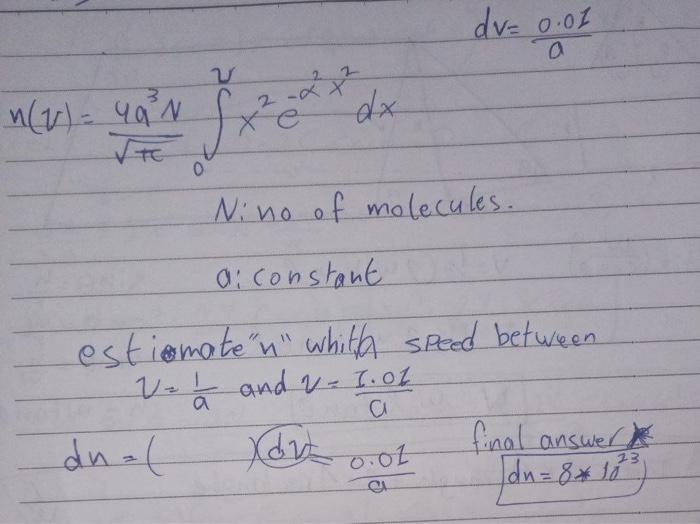 dv = 0.01/a
n(v) = 4a³N/√π ∫₀ᵛ x² e^(-α²x²) dx
N: no of molecules.
a: constant
estiomate "n" whith speed between
v = 1/a and v = 1.01/a
dn = ( )(dv) = 0.01/a
final answer
dn = 8 * 10²³